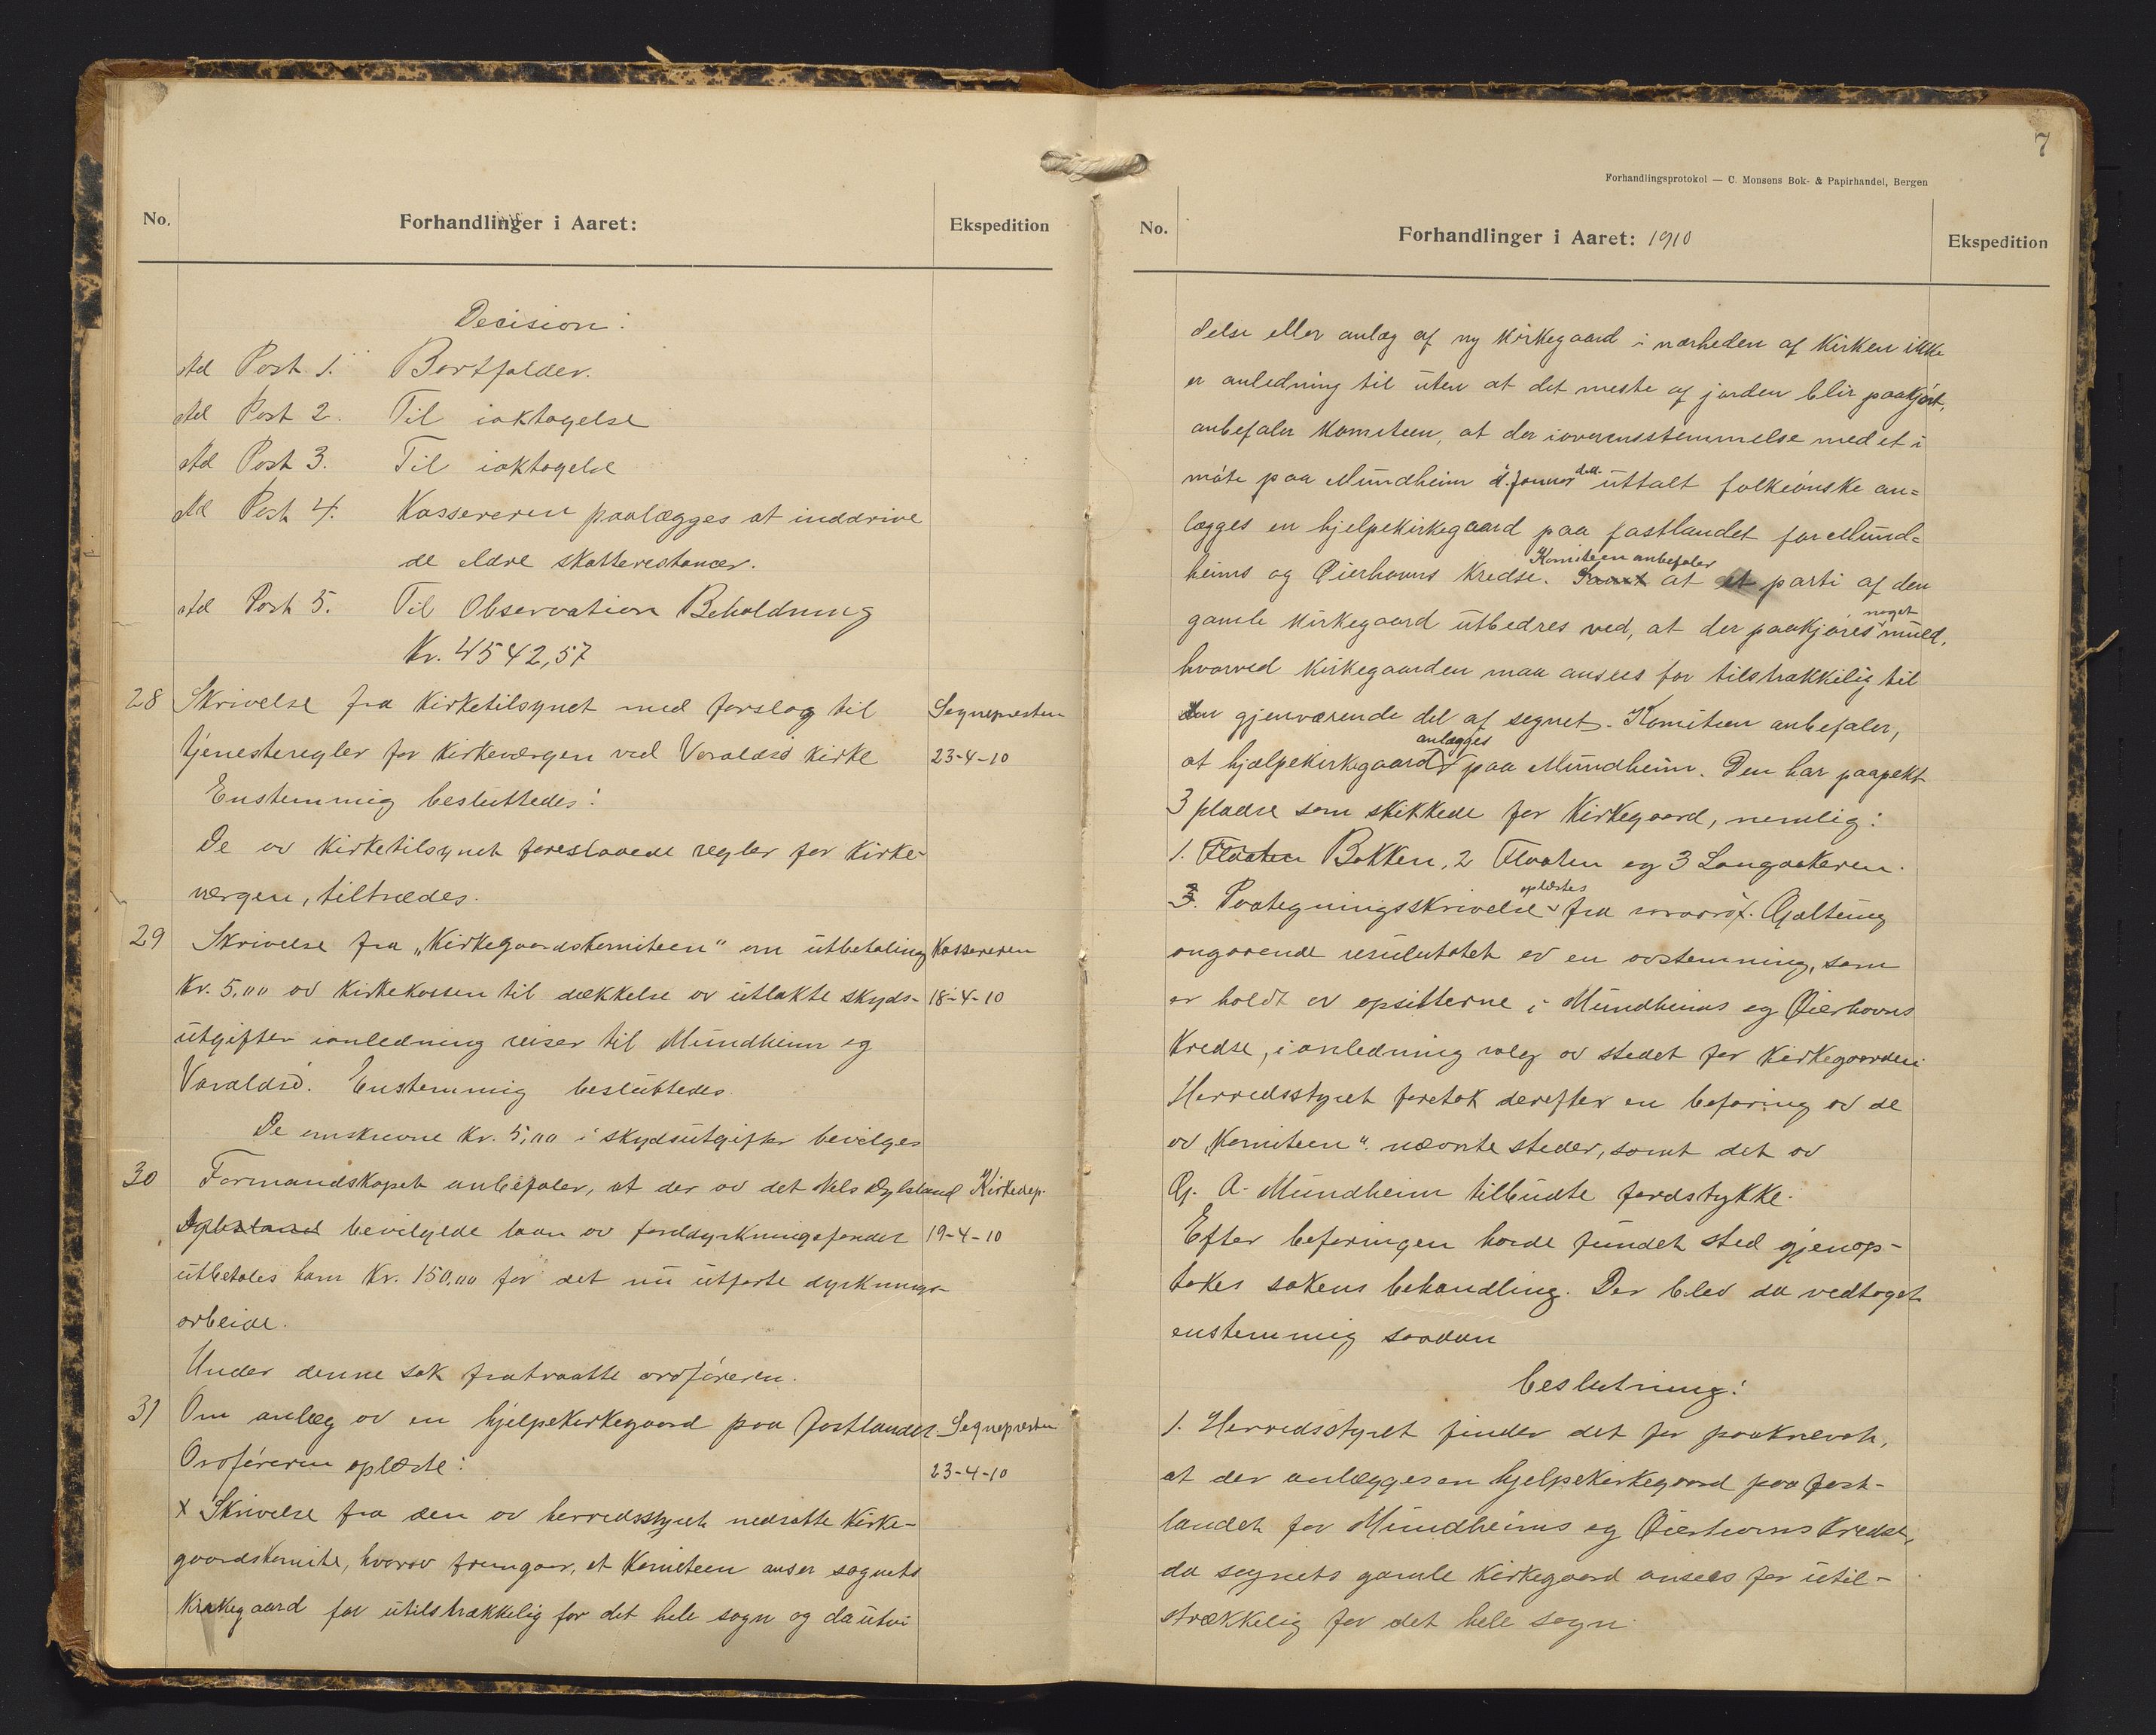 No.
Forhandlinger i Aaret:
Ekspedition
Decision:
Ad Post 1. Bortfalder.
Ad Post 2. Til iaktagelse
Ad Post 3. Til iaktagelse
Ad Post 4. Kassereren paalægges at inddrive
de eldre skatterestancer.
Ad Post 5. Til Observation Beholdning
Kr. 4542,57
28 Skrivelse fra Kirketilsynet med forslag til Sognepresten
tjenesteregler for kirkeværgen ved Varaldsö kirke 23-4-10
Enstemmig besluttedes:
De av kirketilsynet foreslaaede regler for kirke-
værgen, tiltrædes.
29 Skrivelse fra „Kirkegaardskomiteen" om utbetaling Kassereren
Kr. 5,00 av kirkekassen til dækkelse av utlakte skyds- 18-4-10
utgifter ianledning reiser til Mundheim og
Varaldsö. Enstemmig besluttedes.
De omskrevne Kr. 5,00 i skydsutgifter bevilges
30 Formandskapet anbefaler, at der av det Nels Kirkedep.
bevilgede laan av jorddyrkningsfondet 19-4-10
utbetales ham Kr. 150,00 for det nu utførte dyrknings-
arbeide.
Under denne sak fratraatte ordföreren.
31 Om anlæg av en hjelpekirkegaard paa fastlandet. Sognepresten
Ordföreren oplæste: 23-4-10
X Skrivelse fra den av herredsstyret nedsatte kirke-
gaardskomite, hvorav fremgaar, at Komiteen anser sognets
kirkegaard for utilstrækkelig for det hele sogn og da utvi
7
Forhandlingsprotokol — C. Monsens Bok- & Papirhandel, Bergen
No.
Forhandlinger i Aaret: 1910
Ekspedition
delse eller anlæg af ny kirkegaard i nærheden af kirken ikke
er anledning til uten at det meste af jorden blir paakjørt,
anbefaler komiteen, at der ioverensstemmelse med et i
möte paa Mundheim d. Januar d.a. uttalt folkeönske an=
lægges en hjelpekirkegaard paa fastlandet for Mund=
Komiteen anbefaler
heims og Øierhavns kredse. Samt at et parti af den
noget
gamle kirkegaard utbedres ved, at der paakjöres muld,
hvorved kirkegaarden maa ansees for tilstrækkelig til
den gjenværende del af sognet. Komiteen anbefaler,
anlægges
at hjælpekirkegaard paa Mundheim. Den har paapekt
3 pladse som skikkede for Kirkegaard, nemlig:
1. Flaaten Bakken, 2 Flaaten og 3 Langaakeren.
oplæstes
3. Paategningsskrivelse fra Gjaltung
angaaende resulutatet av en avstemning, som
er holdt av opsitterne i Mundheims og Øierhavns
Kredse, i anledning valg av stedet for kirkegaarden.
Herredsstyret foretok derefter en befaring av de
av „Komiteen" nævnte steder, samt det av
G. A. Mundheim tilbudte jordstykke.
Efter befaringen havde fundet sted gjenop-
tokes sakens behandling. Der blev da vedtaget
enstemmig saadan
beslutning:
1. Herredsstyret finder det for paakrevet,
at der anlægges en hjelpekirkegaard paa fast-
landet for Mundheims og Øierhavns kredse,
da sognets gamle kirkegaard ansees for util-
strækkelig for det hele sogn.